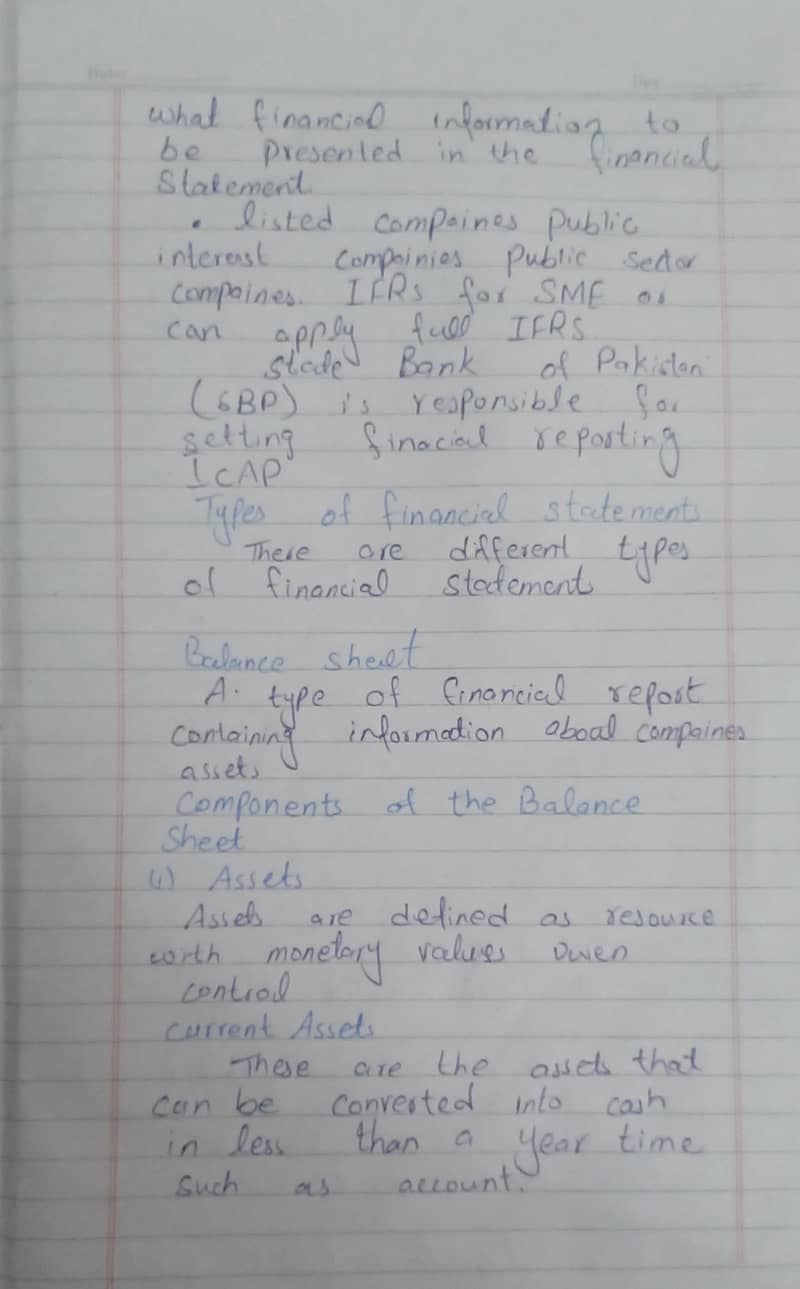 what financial information to
be presented in the financial
Statement.
• listed compaines public
interest compainies public sector
compaines. IFRs for SME or
can apply full IFRS
state Bank of Pakistan
(SBP) is responsible for
setting finacial reporting
ICAP
Types of financial statements
There are different types
of financial statements
Balance sheet
A. type of financial report
containing information aboat compaines
assets
Components of the Balance
Sheet
(i) Assets
Assets are defined as resource
worth monetary values owen
control
current Assets
These are the assets that
can be converted into cash
in less than a year time
such as account.